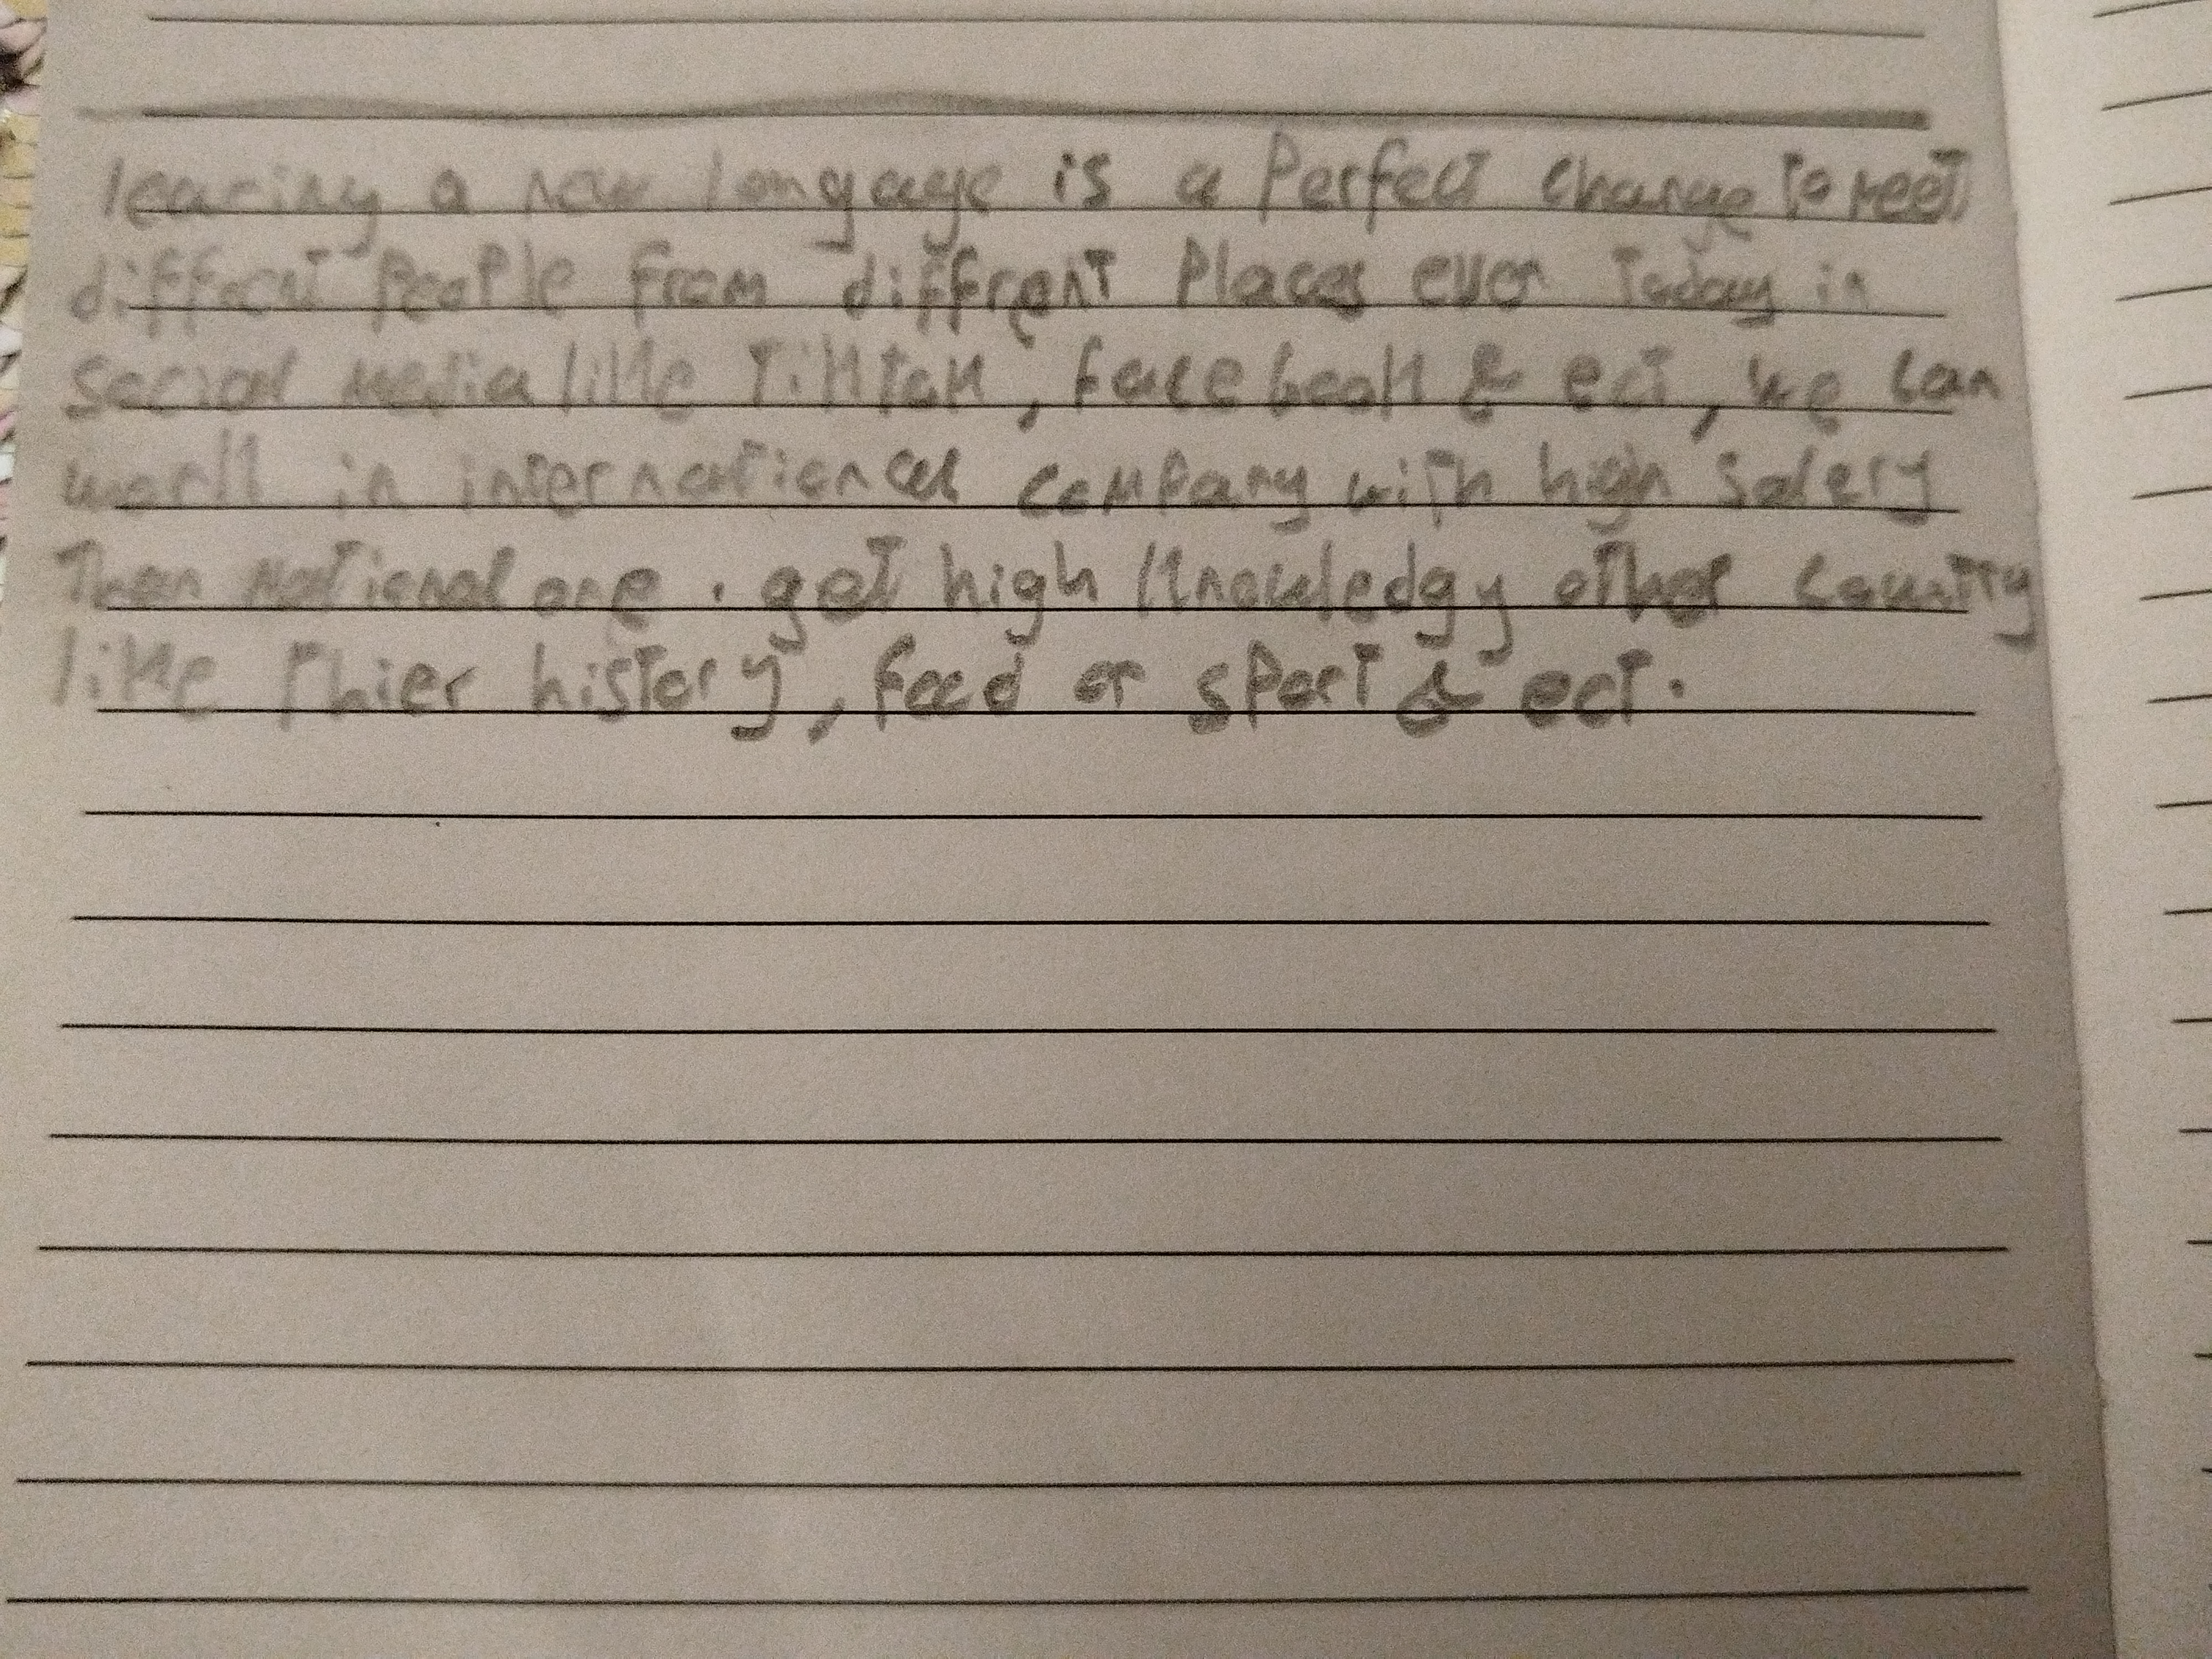 learing a new longage is a Perfect change to meet
differnt People from diffrent Places even today in
social media like Tiktok, facebook & ect, we can
work in international company with high salery
Then National one . get high knowledgy other country
like thier history, food or sport & ect.